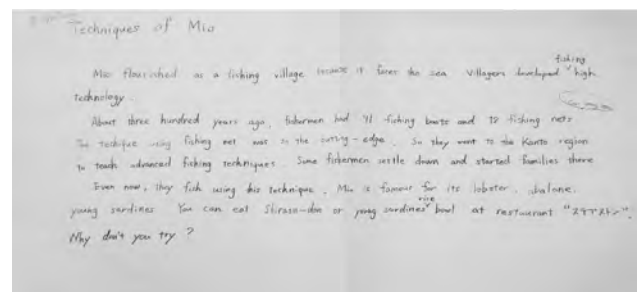 Techniques of Mio
Mio flourished as a fishing village because it faces the sea. Villagers developed fishing high
technology.
About three hundred years ago, fishermen had 91 fishing boats and fishing nets
The techique using fishing net was so the cutting-edge. So they went to the Kanto region
to teach advanced fishing techniques. Some fishermen settle down and started families there
Even now, they fish using this technique. Mio is famous for its lobster, abalone,
young sardines. You can eat Shirasu-don or young sardines rice bowl at restaurant
Why don't you try?